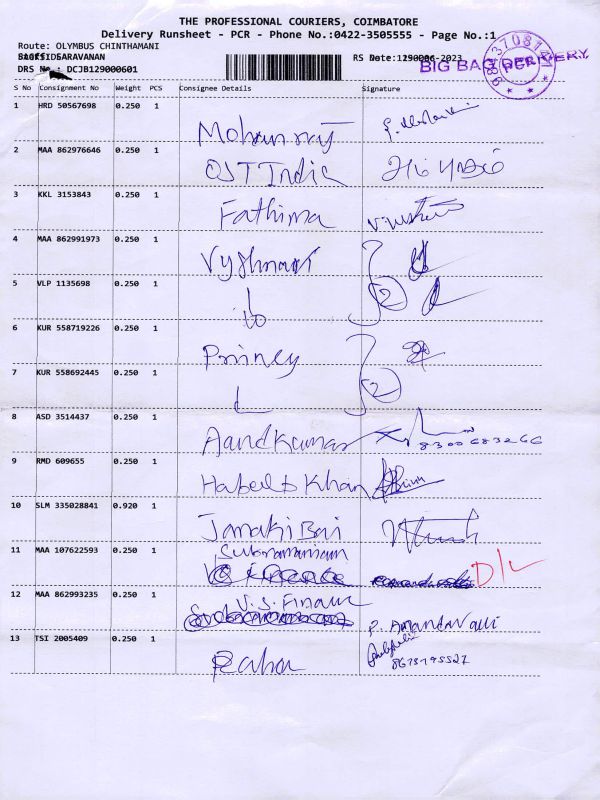 THE PROFESSIONAL COURIERS, COIMBATORE
Delivery Runsheet - PCR - Phone No.:0422-3505555 - Page No.:1
Route: OLYMBUS CHINTHAMANI
SARAVANAN
DRS No.: DCJB129000601
BIG BAG DELIVERY
S No Consignment No Weight PCS Consignee Details Signature
1 HRD 50567698 0.250 1 Mohanraj
2 MAA 862976646 0.250 1 QST India
3 KKL 3153843 0.250 1 Fathima
4 MAA 862991973 0.250 1 Vyshnavi
5 VLP 1135698 0.250 1 2
6 KUR 558719226 0.250 1 Prinney
7 KUR 558692445 0.250 1 2
8 ASD 3514437 0.250 1 Aandkumar
9 RMD 609655 0.250 1 Habeeb Khan
10 SLM 335028841 0.920 1 Janaki Bai
11 MAA 107622593 0.250 1 Subramaniam D/L
12 MAA 862993235 0.250 1 V.S. Finance P. Amandavalli
13 TSI 2005409 0.250 1